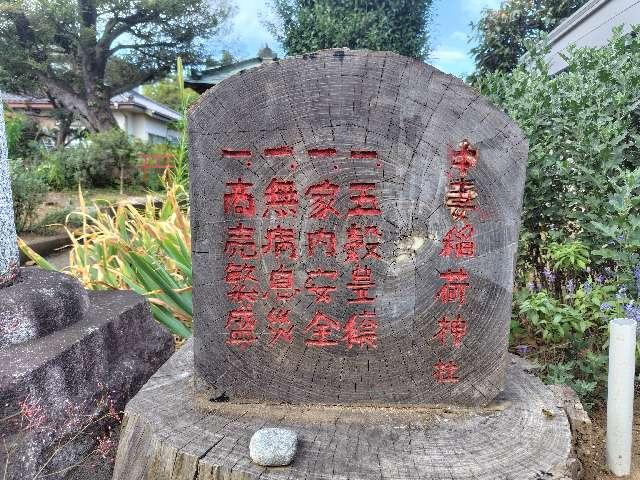 中幸稲荷神社
一、五穀豊穣
一、家内安全
一、無病息災
一、商売繁盛